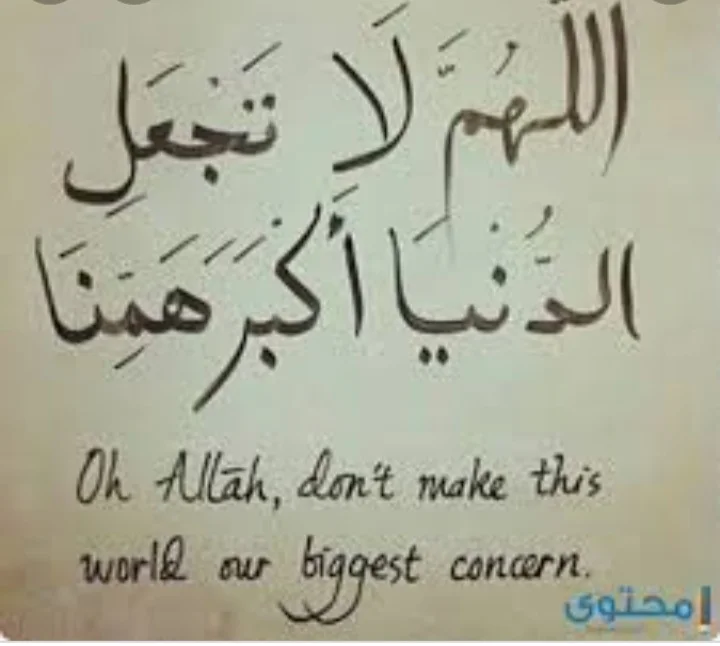 اللّهُمَّ لَا تَجْعَلِ
الدُّنْيَا أَكْبَرَ هَمِّنَا
Oh Allāh, don't make this
world our biggest concern.
محتوى